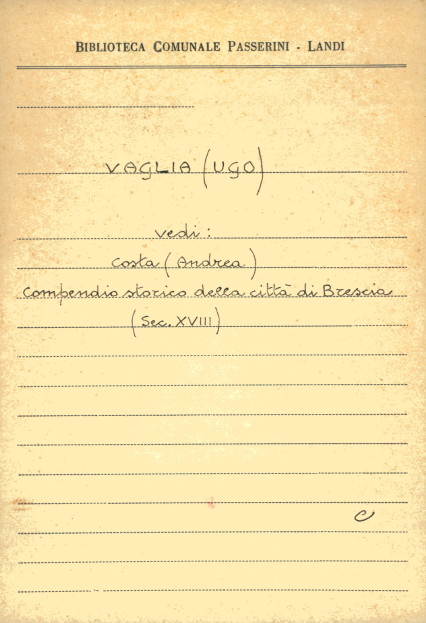 BIBLIOTECA COMUNALE PASSERINI - LANDI
VAGLIA (UGO)
vedi:
Costa (Andrea)
Compendio storico della città di Brescia
(Sec. XVIII)
C